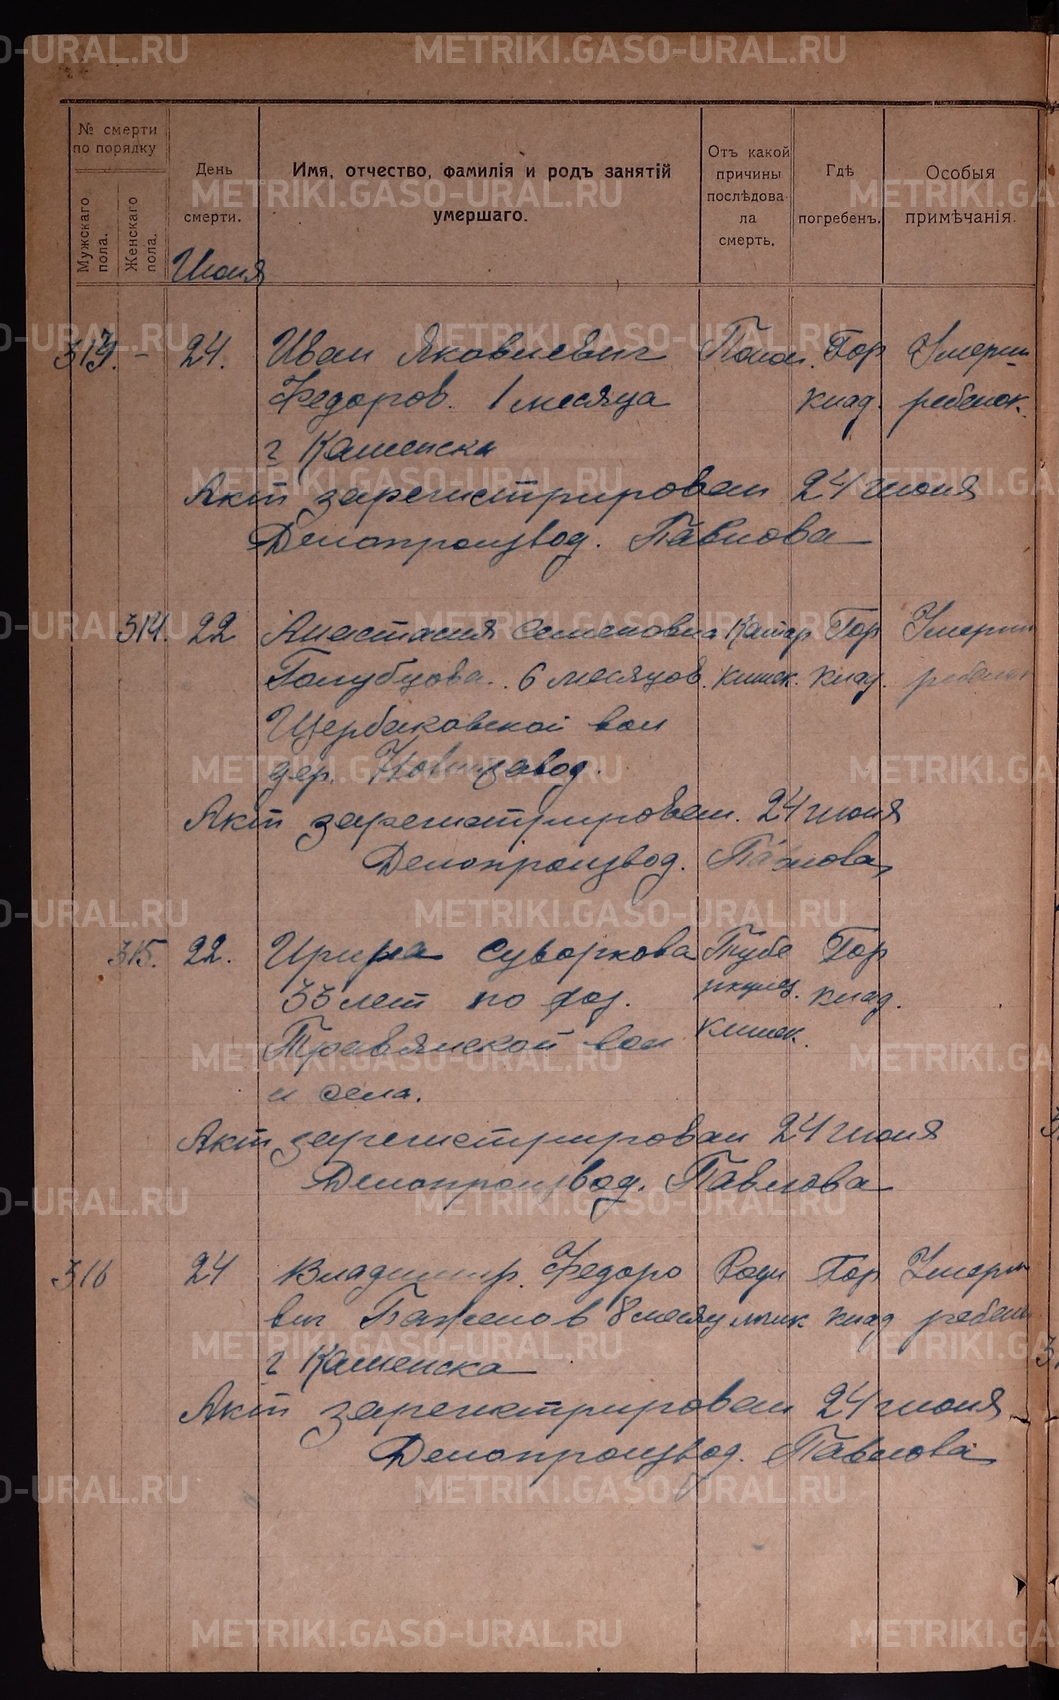 № смерти по порядку
Мужскаго пола.
Женскаго пола.
День смерти.
Имя, отчество, фамилія и родъ занятій умершаго.
Отъ какой причины послѣдовала смерть.
Гдѣ погребенъ.
Особыя примѣчанія.
Июня
313. – 24. Иван Яковлевич Понос. Гор Умерш
Федоров. 1 месяца клад. ребенок.
г Каменска
Акт зарегистрирован 24 июня
Делопроизвод. Павлова
314. 22 Анастасия Семеновна Катар Гор Умерш
Голубцова. 6 месяцов. кишек. клад. ребенок
Щербаковской вол
дер. Новизавод.
Акт зарегистрирован. 24 июня
Делопроизвод. Павлова
315. 22. Ирина Суворкова Тубе Гор
33 лет по
ркулез. клад.
Травянской вол кишек.
и села.
Акт зарегистрирован 24 июня
Делопроизвод. Павлова
316 24 Владимир Федоро Роди Гор Умерш
вич Баженов 8 месяц мчик клад ребен
г Каменска
Акт зарегистрирован 24 июня
Делопроизвод. Павлова
METRIKI.GASO-URAL.RU